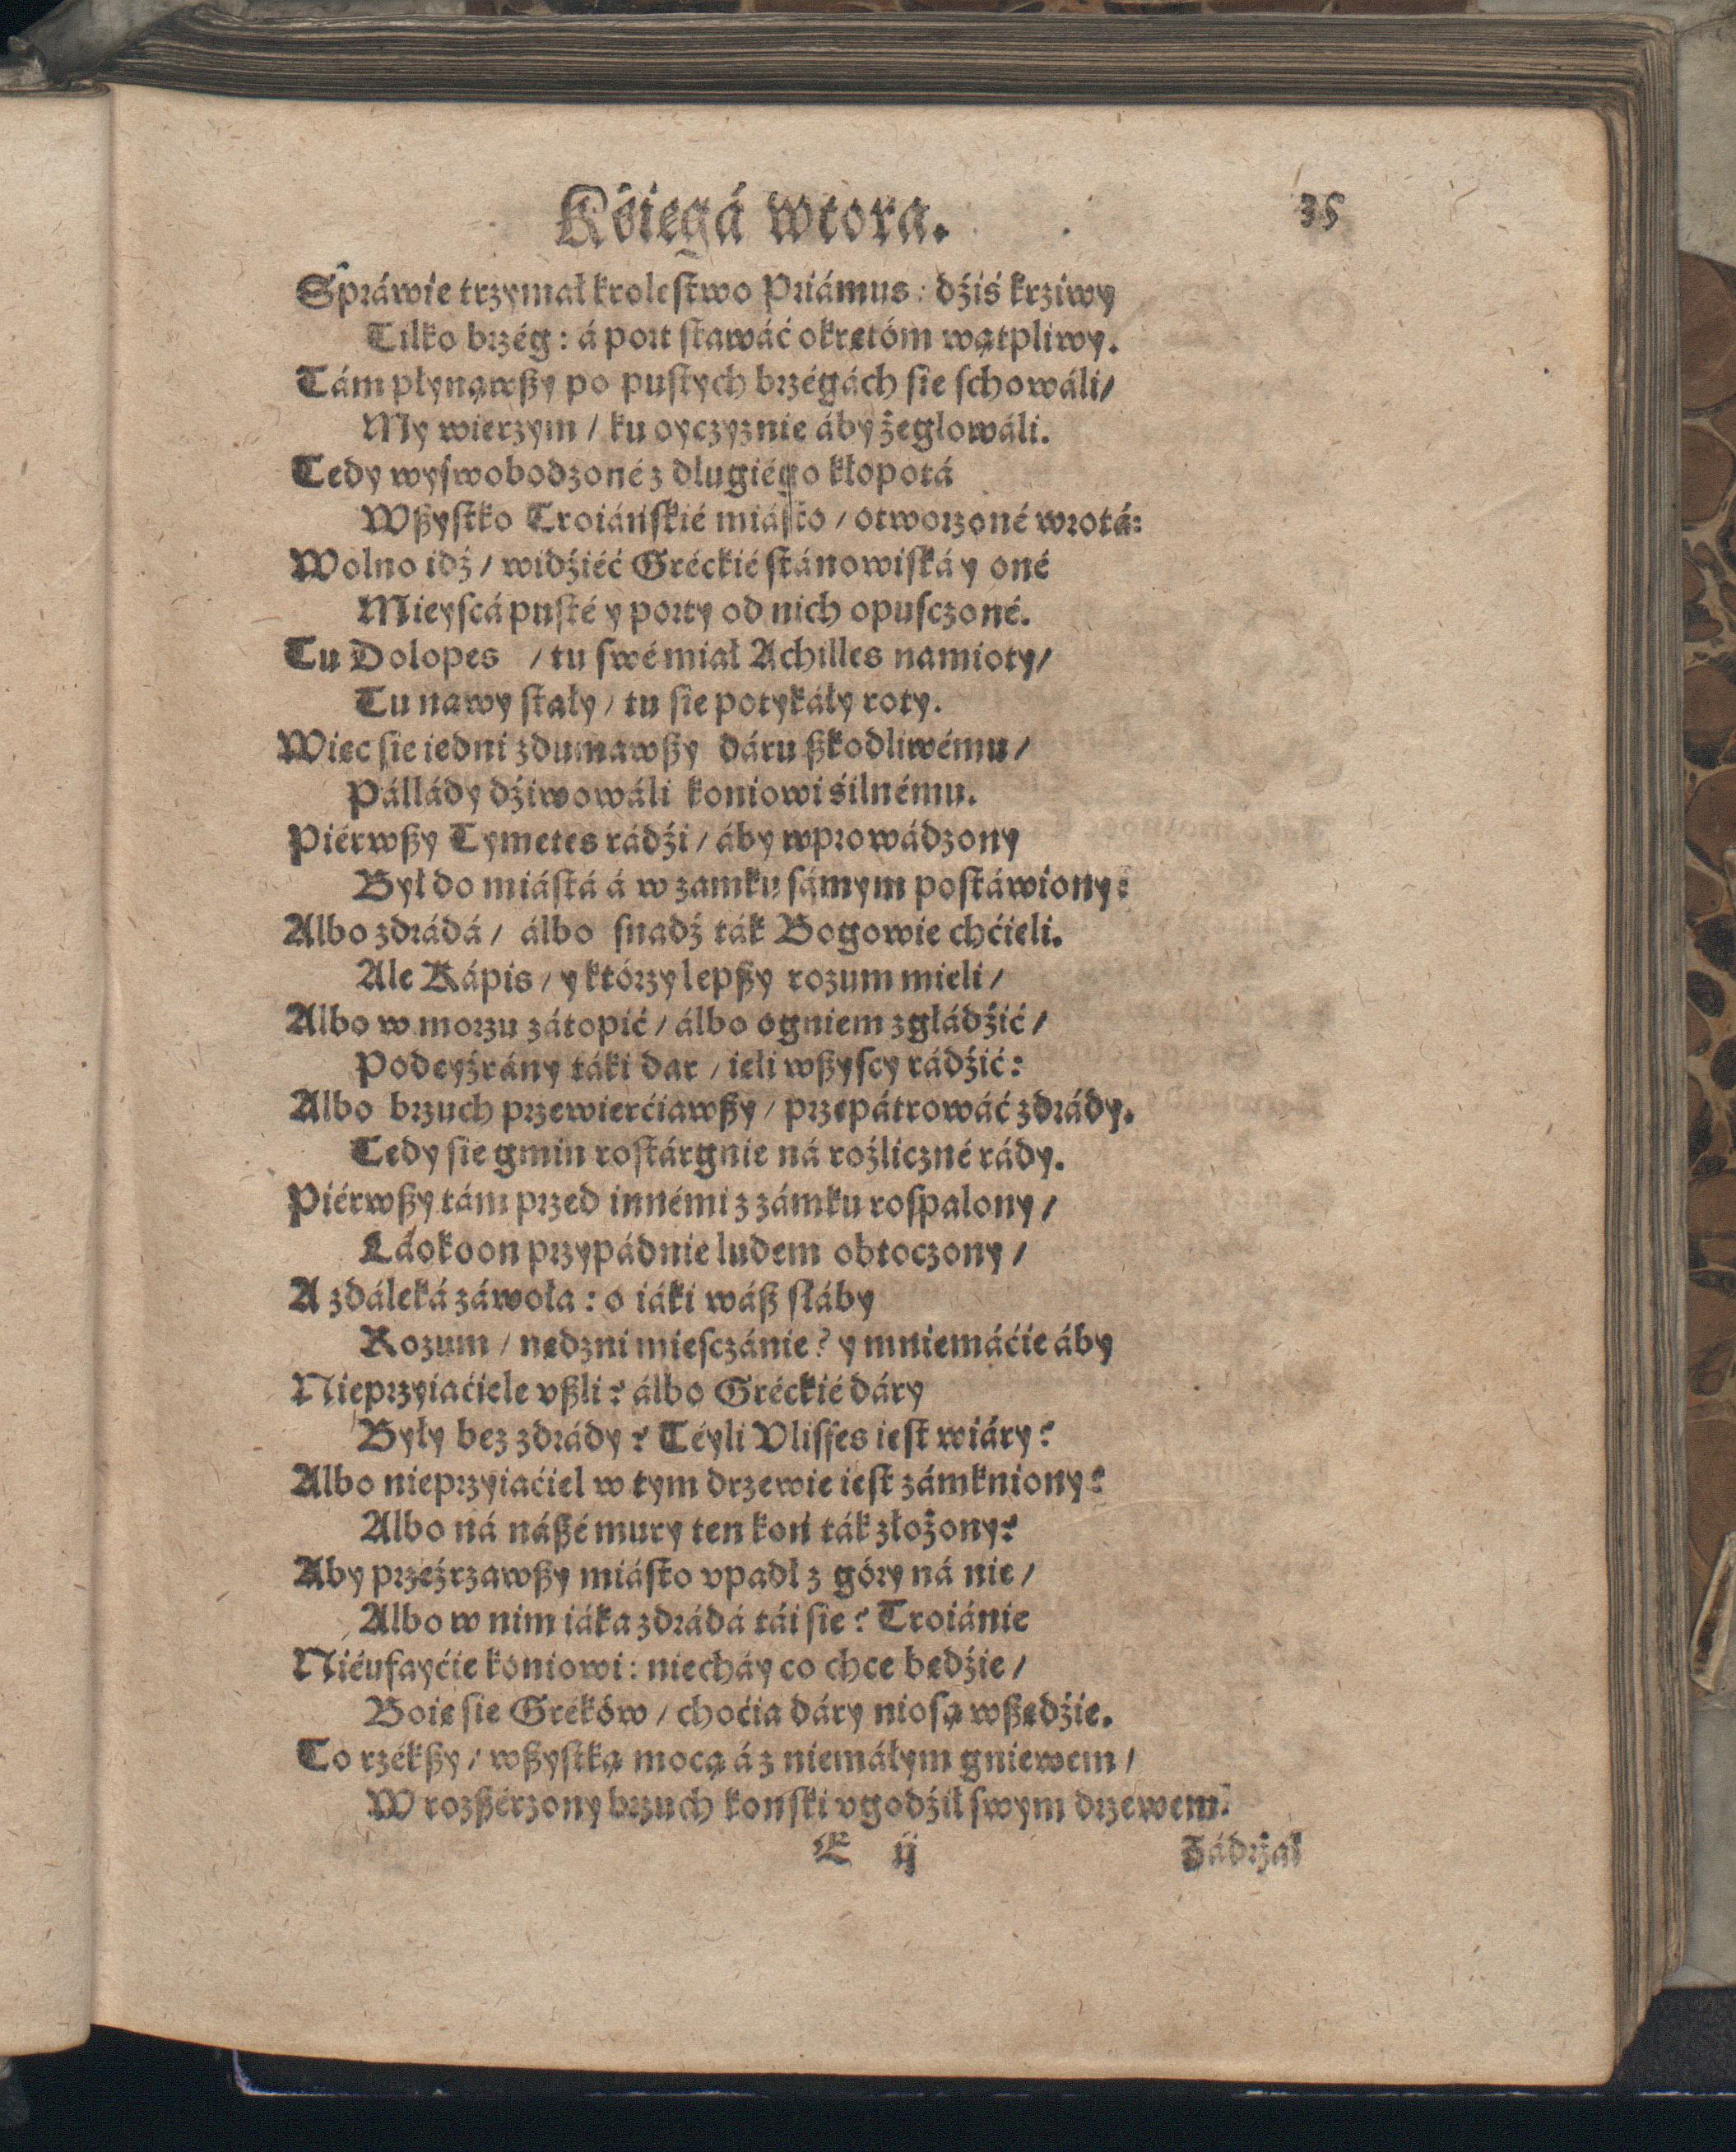 Kśięgá wtora. 35
Spráwie trzymał krolestwo Priámus: dźiś krziwy
Tilko brzég: á port stawáć okrętóm wątpliwy.
Tám płynąwßy po pustych brzégách sie schowáli/
My wierzym / ku oyczyznie áby żeglowáli.
Tedy wyswobodzoné z długiégo kłopotá
Wßystko Troiáńskié miásto / otworzoné wrotá:
Wolno idź / widźiéć Gréckié stánowiská y oné
Mieyscá pusté y porty od nich opusczoné.
Tu Dolopes / tu swé miał Achilles namioty/
Tu nawy stały / tu sie potykáły roty.
Wiec sie iedni zdumawßy dáru ßkodliwému/
Pállády dźiwowáli koniowi śilnému.
Piérwßy Tymetes rádźi / áby wprowádzony
Był do miástá á w zamku sámym postáwiony:
Albo zdrádá / álbo snadź ták Bogowie chćieli.
Ale Kápis / y którzy lepßy rozum mieli /
Albo w morzu zátopić / álbo ogniem zgłádźić /
Podeyźrány táki dar / ieli wßyscy rádźić:
Albo brzuch przewierćiawßy / przepátrowáć zdrády.
Tedy sie gmin rostárgnie ná roźliczné rády.
Piérwßy tám przed innémi z zámku rospalony /
Láokoon przypádnie ludem obtoczony /
A zdáleká záwoła: o iáki wáß słáby
Rozum / nędzni miesczánie? y mniemáćie áby
Nieprzyiaćiele vßli? álbo Gréckié dáry
Były bez zdrády? Téyli Vlisses iest wiáry?
Albo nieprzyiaćiel w tym drzewie iest zámkniony?
Albo ná náßé mury ten koń ták złożony?
Aby przeźrzawßy miásto vpadł z góry ná nie /
Albo w nim iáka zdrádá tái sie? Troiánie
Niéufayćie koniowi: niecháy co chce będźie /
Boię sie Gréków / choćia dáry niosą wßędźie.
To rzékßy / wßystką mocą á z niemáłym gniewem /
W rozßérzony brzuch konski vgodźił swym drzewem.
E ij Zádrżał